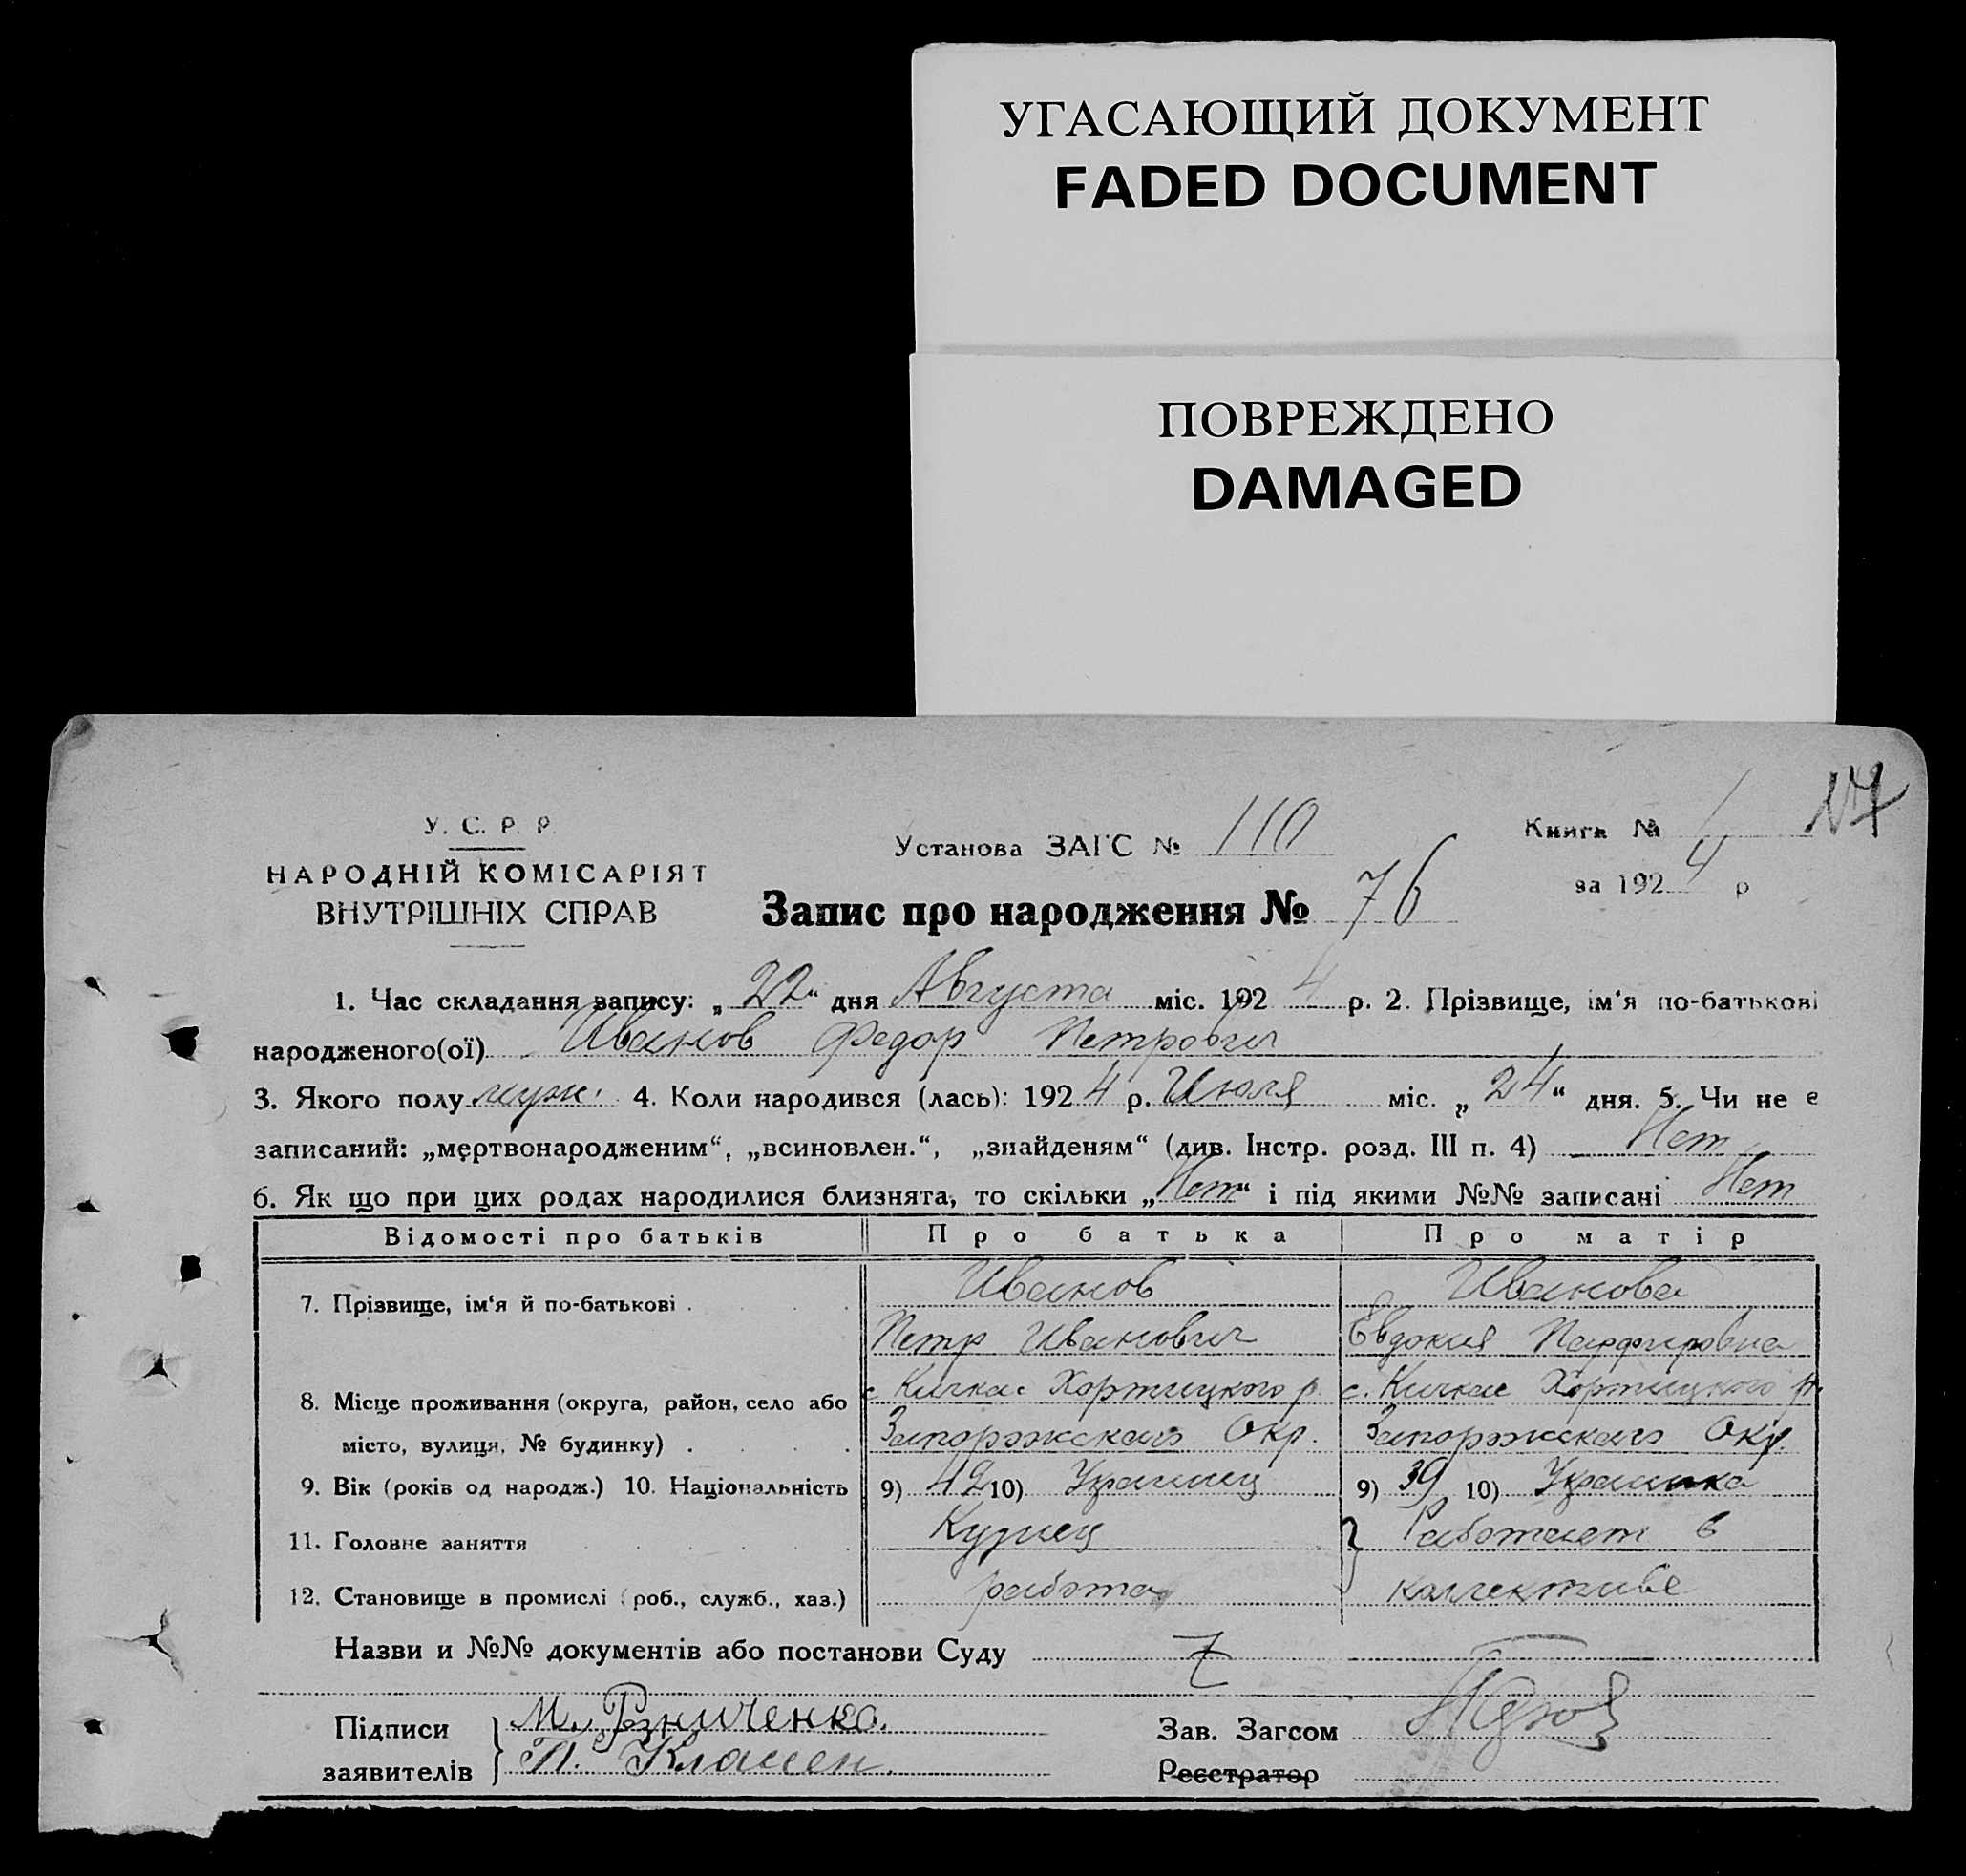 УГАСАЮЩИЙ ДОКУМЕНТ
FADED DOCUMENT
ПОВРЕЖДЕНО
DAMAGED
17
У. С. Р. Р.
Установа ЗАГС № 110
Книга № 1
НАРОДНІЙ КОМІСАРІЯТ
за 1924 р
ВНУТРІШНІХ СПРАВ
Запис про народження № 76
1. Час складання запису: „22“ дня Августа міс. 1924 р. 2. Прізвище, ім‘я по-батькові
народженого(ої) Иванов Федор Петрович
3. Якого полу муж. 4. Коли народився (лась): 1924 р. Июля міс. „24“ дня. 5. Чи не є
записаний: „мертвонародженим“, „всиновлен.“, „знайденям“ (див. Інстр. розд. III п. 4) Нет
6. Як що при цих родах народилися близнята, то скільки „Нет“ і під якими №№ записані Нет
Відомості про батьків Про батька Про матір
Иванов Иванова
7. Прізвище, ім‘я й по-батькові .
Петр Иванович Евдокия Парфировна
с Кичкас Хортицкого р. с. Кичкас Хортицкого р.
8. Місце проживання (округа, район, село або
місто, вулиця, № будинку) . Запорожскаго Окр. Запорожскаго Окр.
9. Вік (років од народж.) 10. Національність 9) 42 10) Украинец 9) 39 10) Украинка
11. Головне заняття Кузнец Работает в
12. Становище в промислі (роб., служб., хаз.) работа коллективе
Назви и №№ документів або постанови Суду
Підписи М. Резниченко.
Зав. Загсом
заявителів П. Классен.
Реєстратор